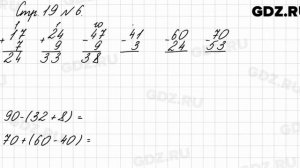 GDZ.RU
Стр. 19 № 6.
+17 +24 -47 -41 -60 -70
7 9 9 3 24 53
24 33 38
90-(32+8)=
70+(60-40)=
GDZ.RU